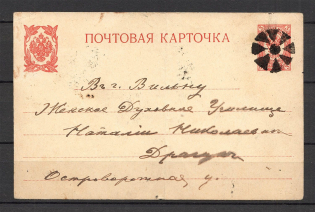 ПОЧТОВАЯ КАРТОЧКА
Въ г. Вильну
Женское Духовное Училище
Наталіи Николаевне
Островоротная у.